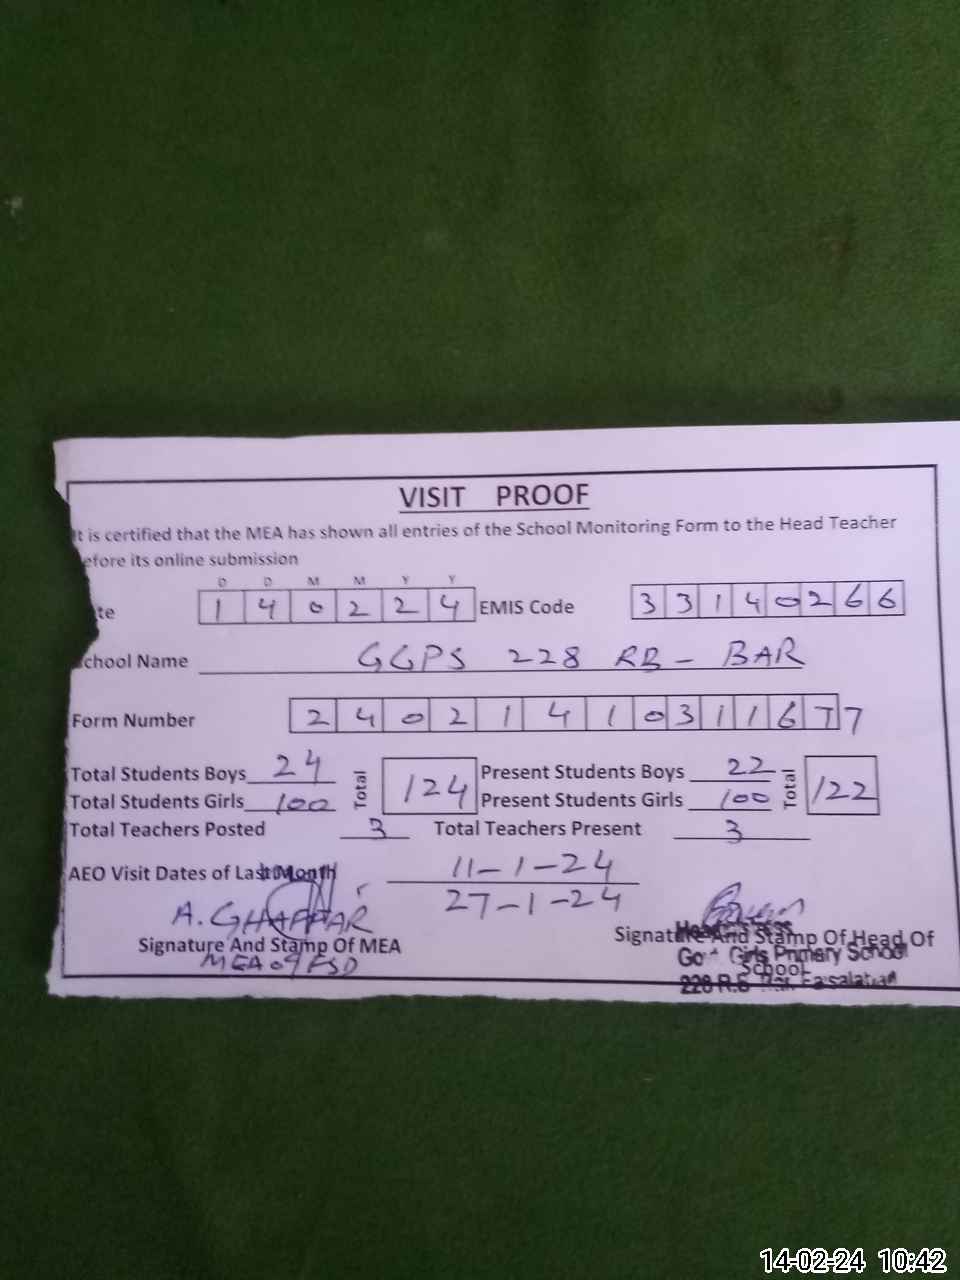 VISIT PROOF
It is certified that the MEA has shown all entries of the School Monitoring Form to the Head Teacher
efore its online submission
D D M M Y Y
te 1 4 0 2 2 4 EMIS Code 3 3 1 4 0 2 6 6
chool Name GGPS 228 RB - BAR
Form Number 2 4 0 2 1 4 1 0 3 1 1 6 7 7
Total Students Boys 24 Total 124 Present Students Boys 22 Total 122
Total Students Girls 100 Present Students Girls 100
Total Teachers Posted 3 Total Teachers Present 3
AEO Visit Dates of Last Month 11-1-24
27-1-24
A. GHAFFAR
Signature And Stamp Of MEA Signature And Stamp Of Head Of
School
MEA 09 FSD
Head
Girls Primary School
228 R.B Faisalabad
14-02-24 10:42